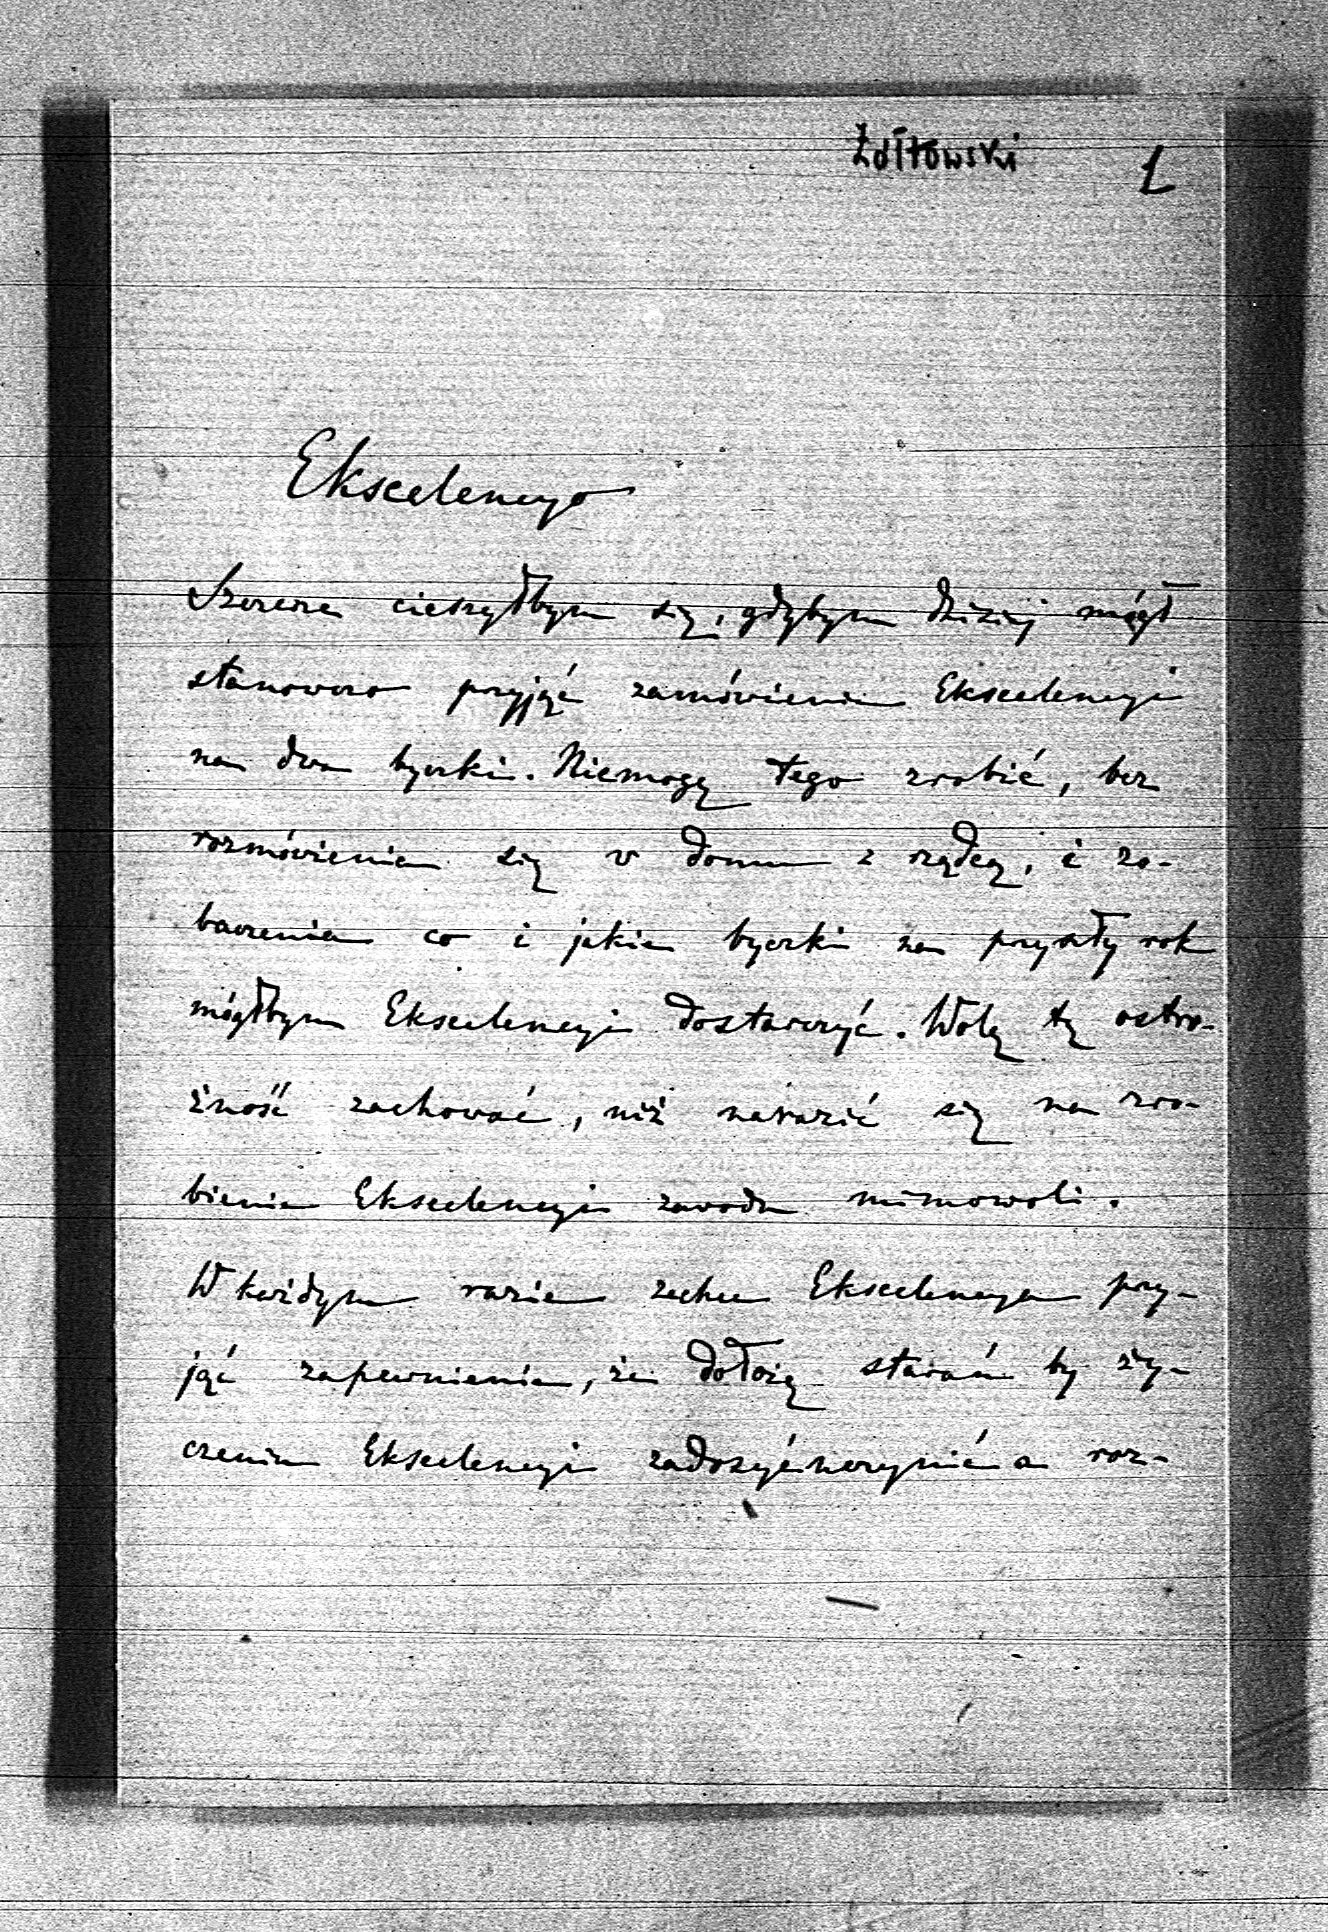 Żółtowski 1
Ekscelencyo
Szczerze cieszyłbym się, gdybym dzisiej mógł
stanowczo przyjąć zamówienie Ekscelencyi
na dwa byczki. Niemogę tego zrobić, bez
rozmówienia się w domu z rządcą, i zo-
baczenia co i jakie byczki na przyszły rok
mógłbym Ekscelencyi dostarczyć. Wolę tę ostro-
żność zachować, niż narazić się na zro-
bienie Ekscelencyi zawodu mimowoli.
W każdym razie zechce Ekscelencya przy-
jąć zapewnienie, że dołożę starań by ży-
czeniu Ekscelencyi zadosyćuczynić a roz-